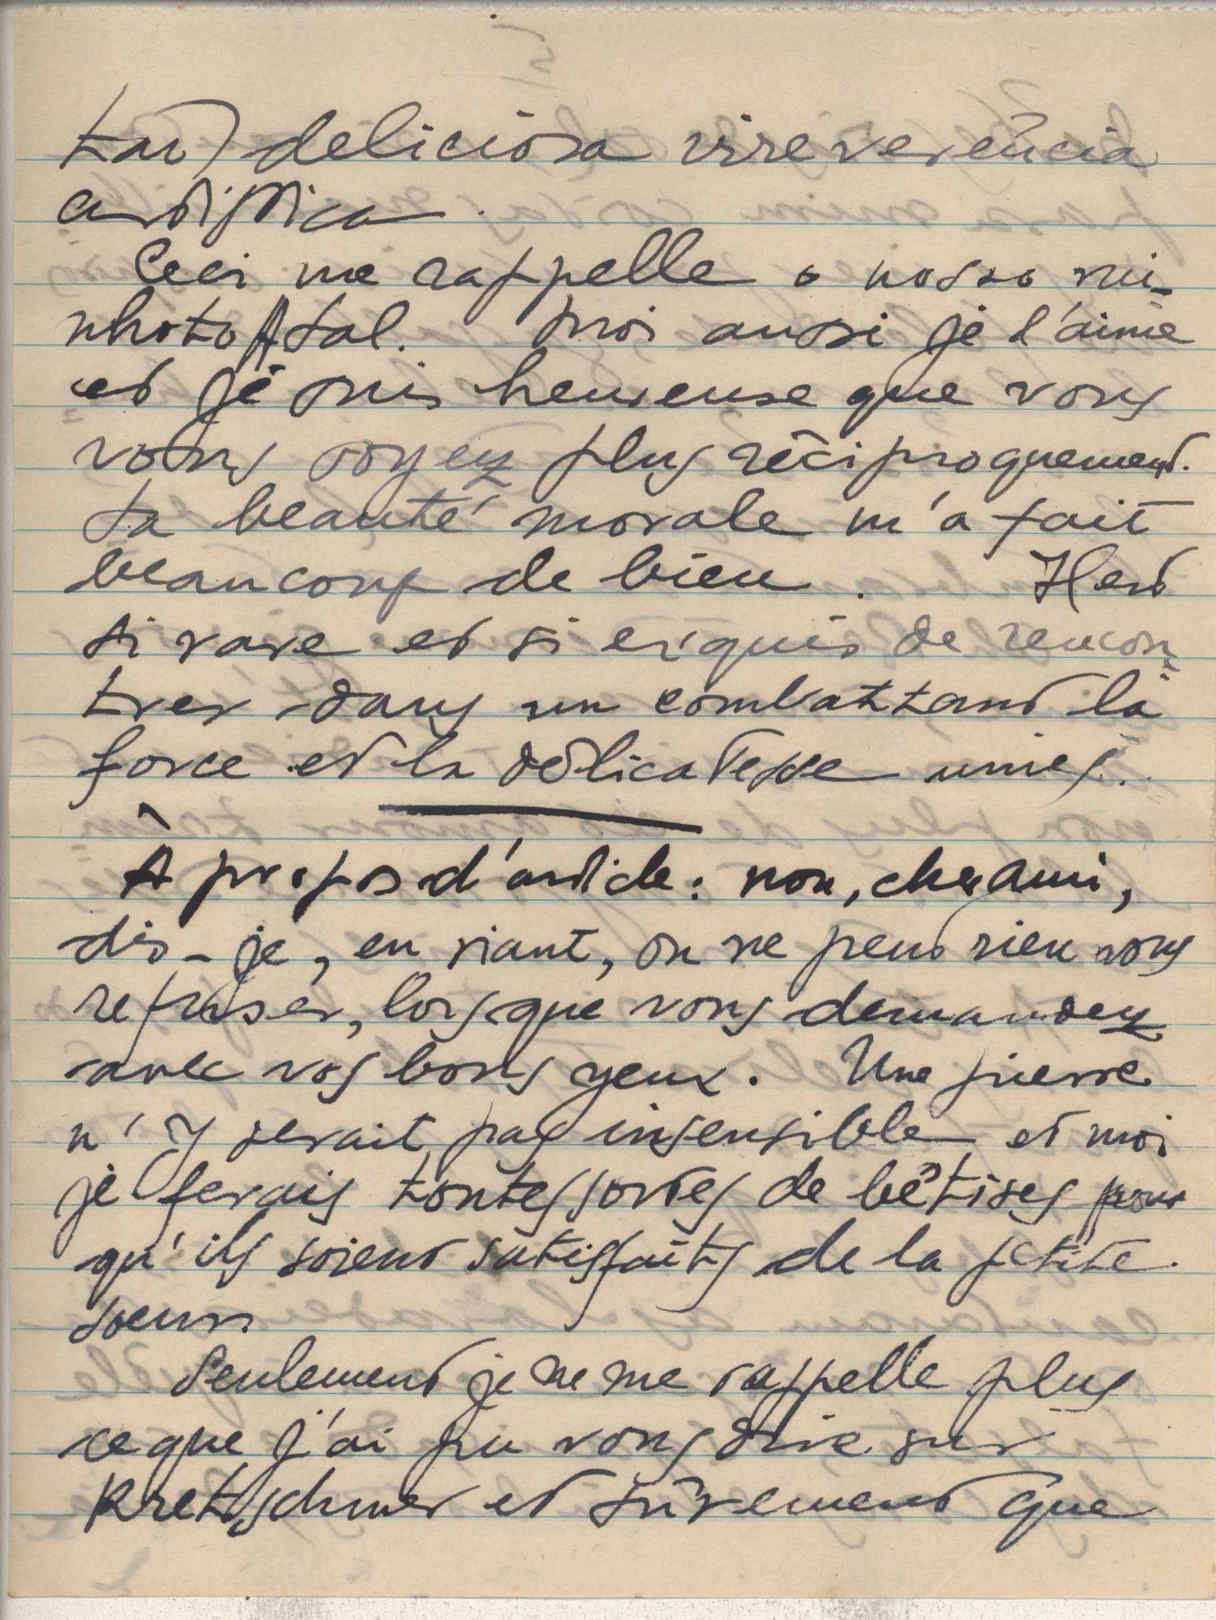 tão) deliciosa irreverência
artistica.
Ceci me rappelle o nosso mi-
nhoto Atal. Moi aussi je l'aime
et je suis heureuse que vous
vous soyez plus réciproquement.
Sa beauté morale m'a fait
beaucoup de bien. Il est
si rare et si exquis de rencon-
trer dans un combattant la
force et la délicatesse unies.
À propos d'article: non, cher Ami,
dis-je, en riant, on ne peut rien vous
refuser, lorsque vous demandez
avec vos bons yeux. Une pierre
n'y serait pas insensible et moi
je ferais toutes sortes de bêtises pour
qu'ils soient satisfaits de la petite
soeur.
Seulement je ne me rappelle plus
ce que j'ai pu vous dire sur
Kretschmer et sûrement que